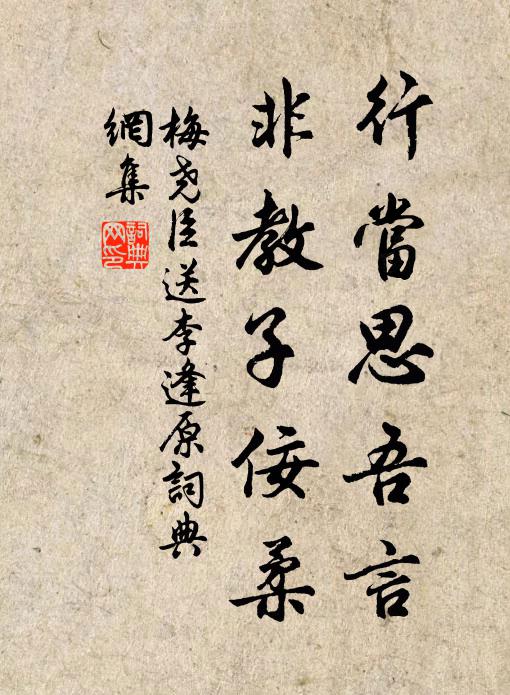 行當思吾言
非教子佞柔
梅堯臣送李逢原詞典
網集
詞典
网印